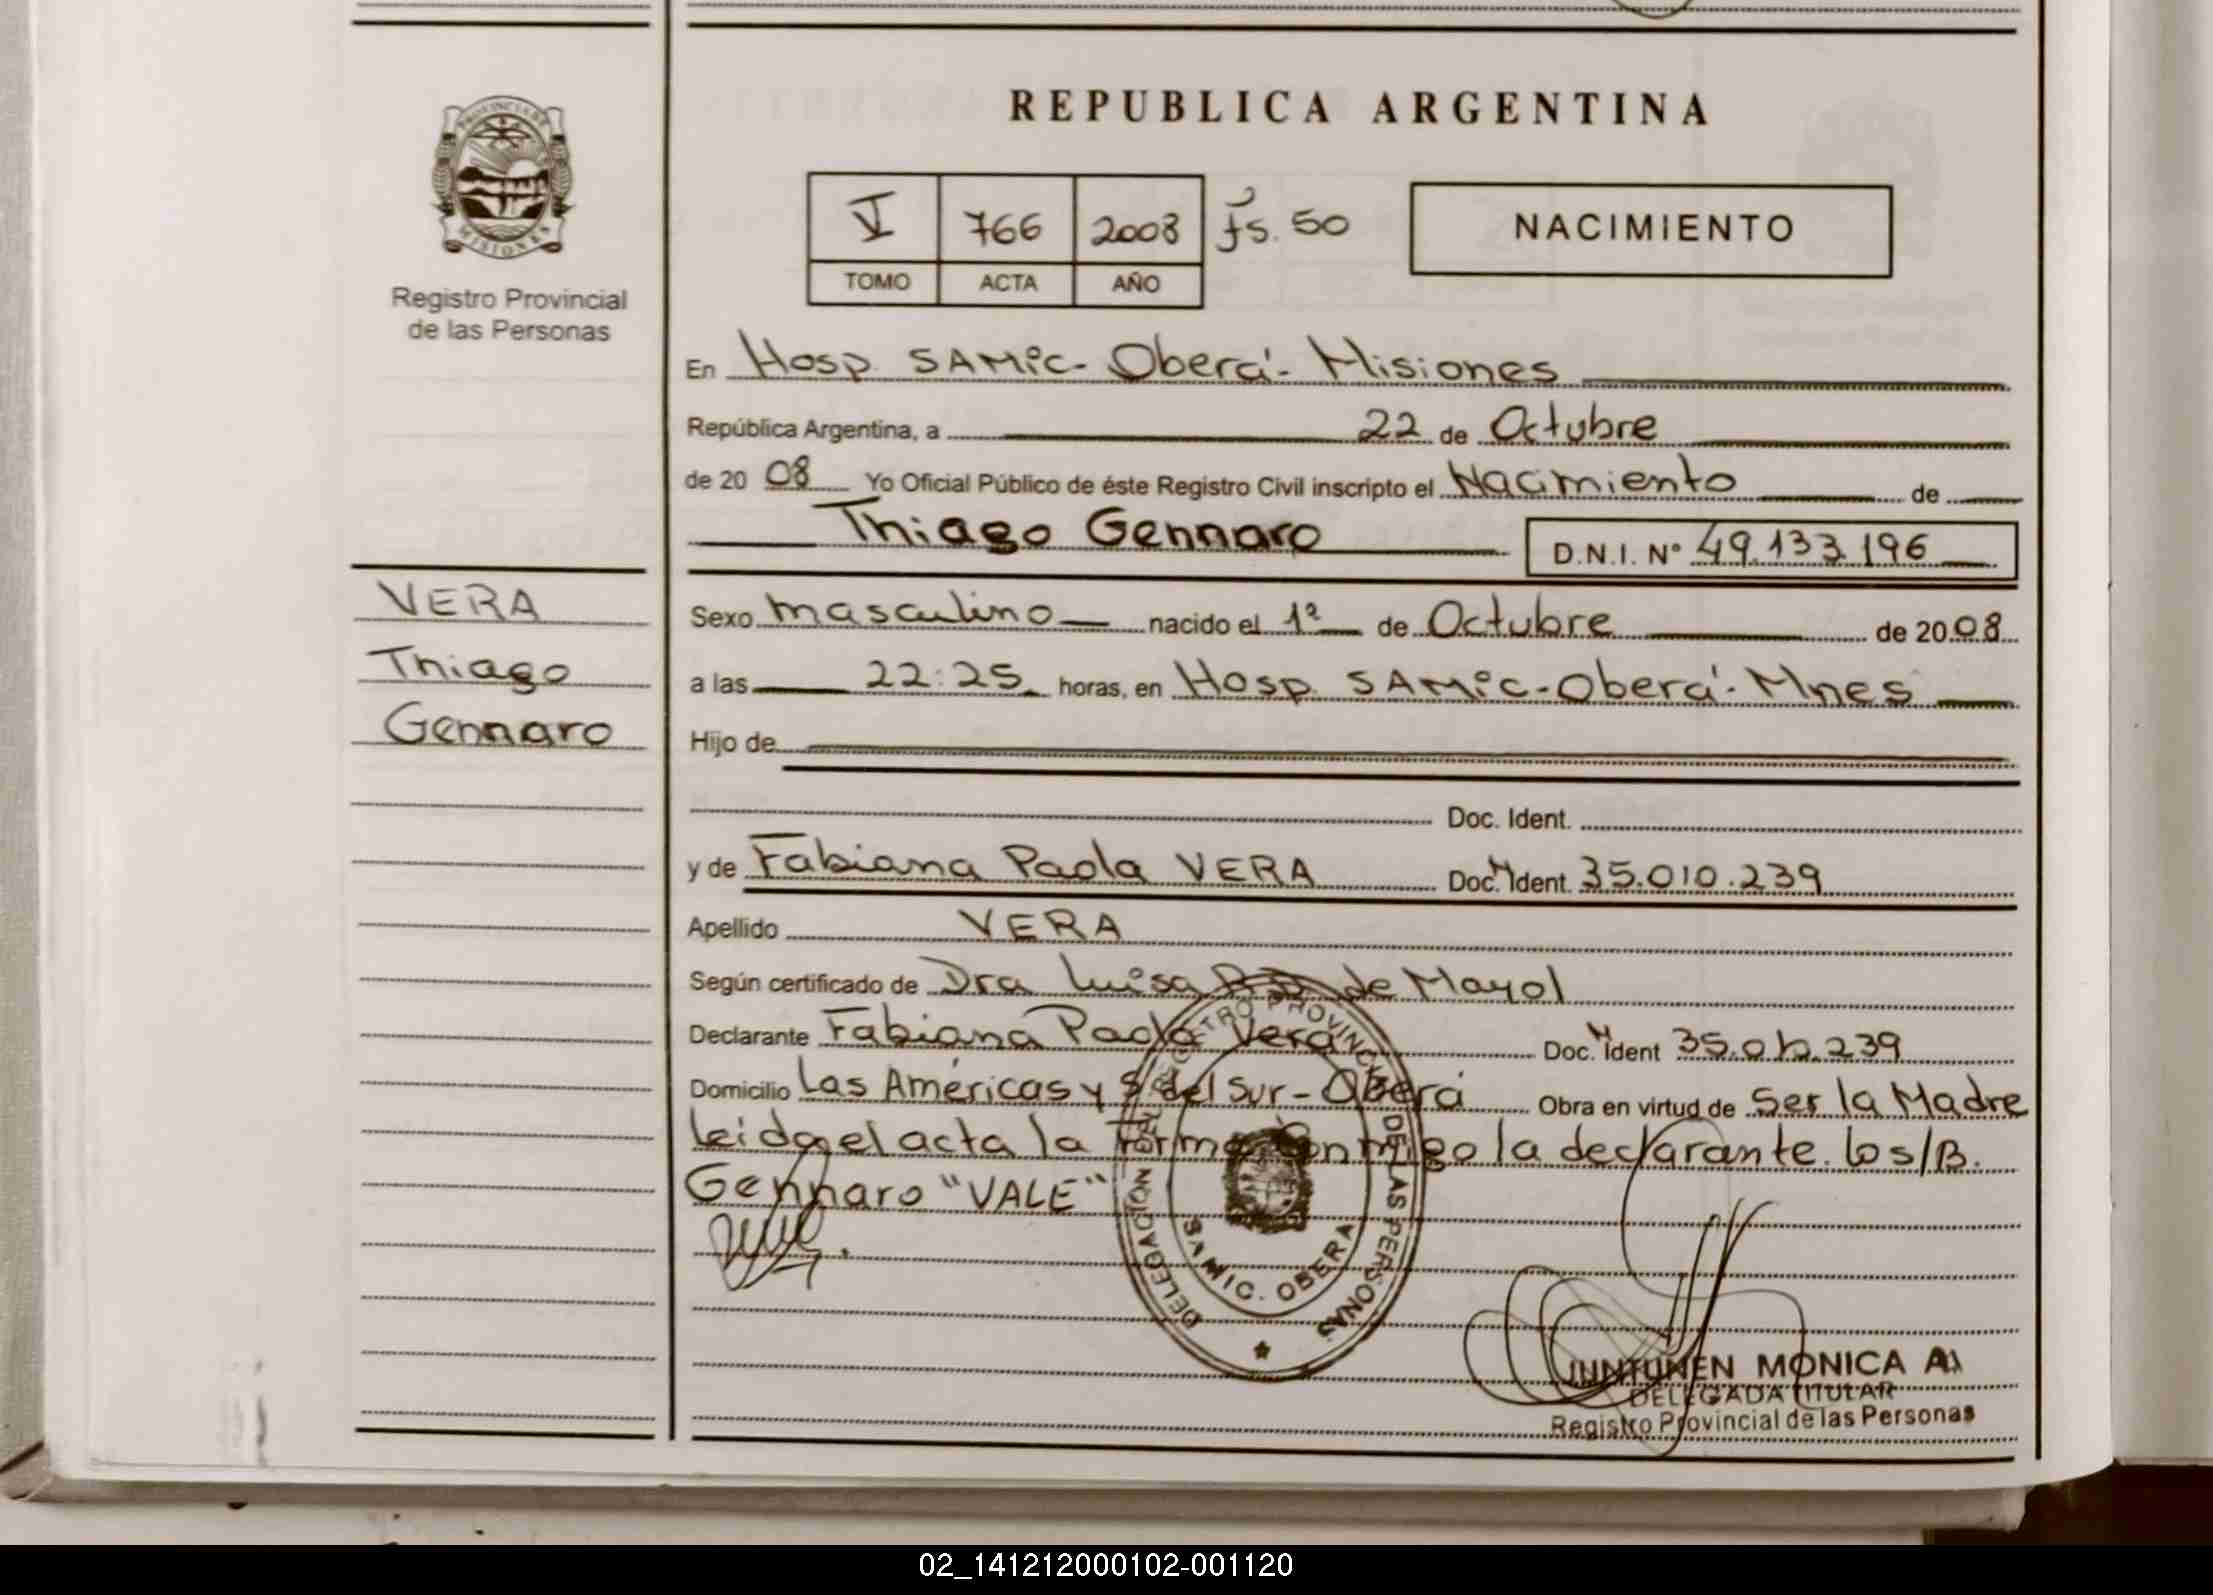 REPUBLICA ARGENTINA
PROVINCIA DE MISIONES
Registro Provincial
de las Personas
V 766 2008 Fs. 50
TOMO ACTA AÑO
NACIMIENTO
En Hosp. SAMiC - Oberá - Misiones
República Argentina, a 22 de Octubre
de 20 08 Yo Oficial Público de éste Registro Civil inscripto el Nacimiento de
Thiago Gennaro D.N.I. Nº 49.133.196
VERA
Thiago
Gennaro
Sexo masculino nacido el 1º de Octubre de 20 08
a las 22:25 horas, en Hosp. SAMiC - Oberá - Mnes
Hijo de
Doc. Ident.
y de Fabiana Paola VERA Doc. Ident. 35.010.239
Apellido VERA
Según certificado de Dra Luisa de Mayol
Declarante Fabiana Paola Vera Doc. Ident 35.010.239
Domicilio Las Américas y S del Sur - Oberá Obra en virtud de Ser la Madre
leida el acta la firma conmigo la declarante. lo s/B.
Gennaro "VALE"
DELEGACION DEL REGISTRO PROVINCIAL DE LAS PERSONAS
SAMIC. OBERA
JUNTUNEN MONICA A.
DELEGADA TITULAR
Registro Provincial de las Personas
02_141212000102-001120